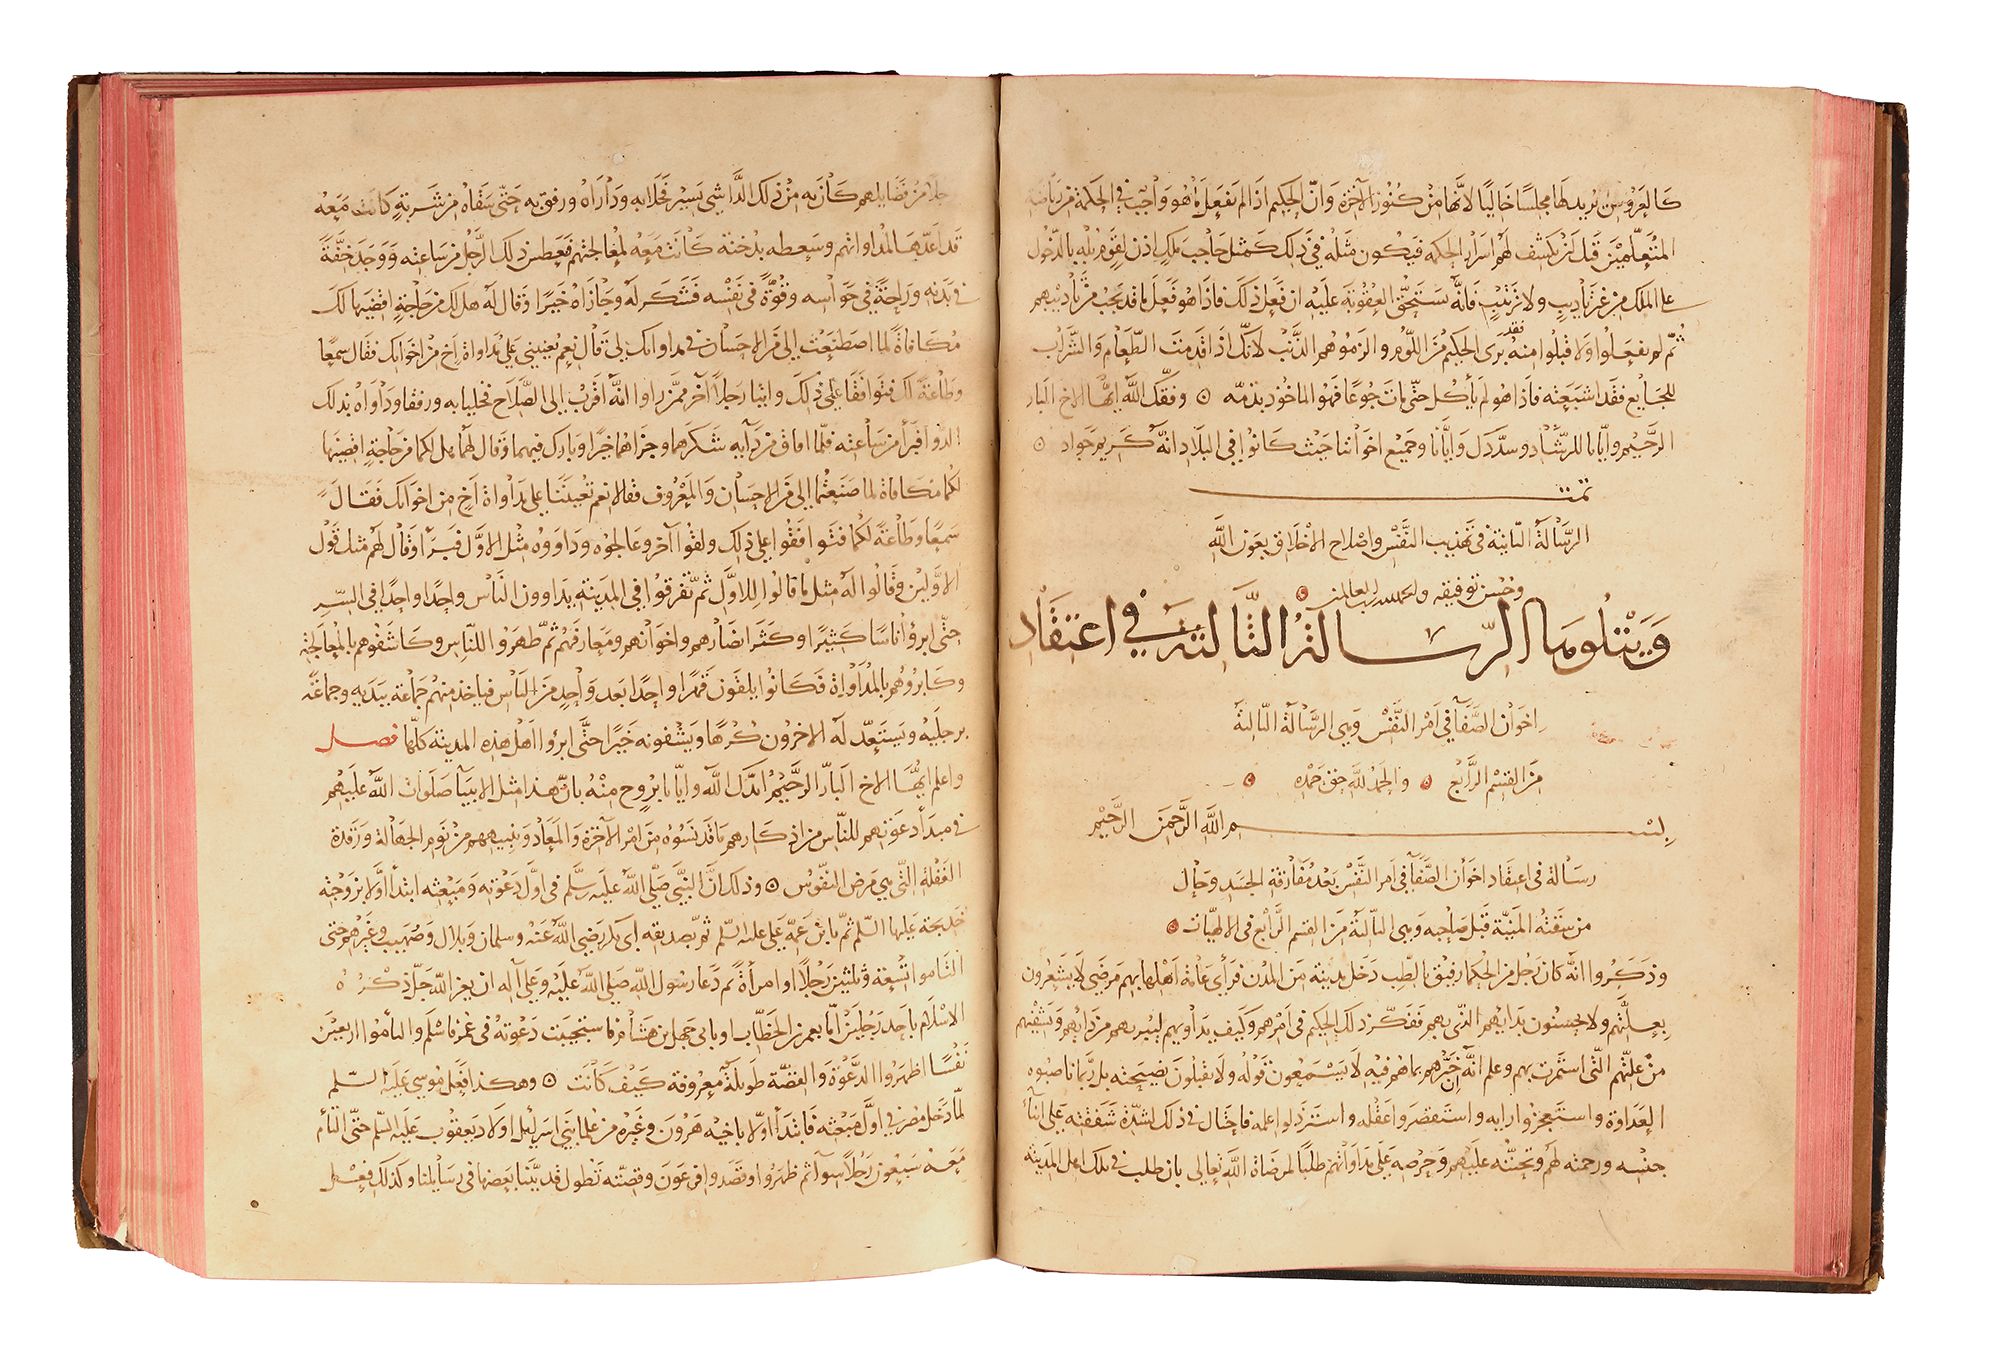 كالعروس التي يريد لها مجلسا خاليا لانها من كنوز الآخرة وان الحكيم اذا لم يفعل ما هو واجب في الحكمة من رياضة
المتعلمين قبل ان يكشف لهم اسرار الحكمة فيكون مثله في ذلك كمثل حاجب ملك اذن لقوم بله بالدخول
على الملك من غير تأديب ولا ترتيب فانه يستحق العقوبة عليه ان فعل ذلك فاذا هو فعل ما قد يجب من تأديبهم
ثم لم يفعلوا ولا قبلوا منه فقد برى الحكيم من اللوم والزموهم الذنب لانك اذا قدمت الطعام والشراب
للجايع فقد اشبعته فاذا هو لم يأكل حتى مات جوعا فهو الماخوذ بذمه وفقك الله ايها الاخ البار
الرحيم وايانا للرشاد وسددك وايانا وجميع اخواننا حيث كانوا في البلاد انه كريم جواد
تمت
الرسالة الثانية في تهذيب النفس واصلاح الاخلاق بعون الله
وحسن توفيقه والحمد لله رب العالمين
ويتلوها الرسالة الثالثة في اعتقاد
اخوان الصفآ في امر النفس وهي الرسالة الثالثة
من القسم الرابع والحمد لله حق حمده
بسم الله الرحمن الرحيم
رسالة في اعتقاد اخوان الصفآ في امر النفس بعد مفارقة الجسد وحال
من سبقته المنية قبل صاحبه وهي الثالثة من القسم الرابع في الالهيات
وذكروا انه كان رجل من الحكما رفيق بالطب دخل مدينة من المدن فرأى عامة اهلها بهم مرض لا يشعرون
بعلتهم ولا يحسون بدايهم الذي بهم ففكر ذلك الحكيم في امرهم وكيف يداويهم ليبريهم من دايهم ويشفيهم
من علتهم التي استمرت بهم وعلم انه ان خبرهم بما هم فيه لا يستمعون قوله ولا يقبلون نصيحته بل ربما ناصبوه
العداوة واستعجزوا رايه واستنقصوا عقله واسترذلوا علمه فاحتال في ذلك لشدة شفقته على ابنآ
جنسه ورحمته لهم وتحننه عليهم وحرصه على مداواتهم طلبا لمرضاة الله تعالى بان طلب في تلك اهل المدينة
رجلا من فضايلهم كان به من ذلك الدا شي يسير فخلا به وداراه ورفق به حتى سقاه من شربة كانت معه
قد اعدها لمداواتهم وسعطه بدخنة كانت معه لمعالجتهم فعطس ذلك الرجل من ساعته ووجد خفة
في بدنه وراحة في حواسه وقوة في نفسه فشكر له وجازاه خيرا وقال له هل لك من حاجة اقضيها لك
مكافاة لما اصطنعت الي من الاحسان في مداواتك لي قال نعم تعينني على مداواة اخ من اخوانك فقال سمعا
وطاعة لك فتوافقا على ذلك واتيا رجلا آخر ممن راوا انه اقرب الى الصلاح فخليا به ورفقا وداواه بذلك
الدوا فبرأ من ساعته فلما افاق من دآيه شكرهما وجزاهما خيرا وبارك فيهما وقال لهما هل لكما من حاجة اقضيها
لكما مكافاة لما صنعتما الي من الاحسان والمعروف فقالا نعم تعيننا على مداواة اخ من اخوانك فقال
سمعا وطاعة لكما فتوافقوا على ذلك ولقوا آخر وعالجوه وداووه مثل الاول فبرآ وقال لهم مثل قول
الاولين وقالوا له مثل ما قالوا للاول ثم تفرقوا في المدينة يداوون الناس واحدا واحدا في السر
حتى ابرؤا اناسا كثيرا وكثر انصارهم واخوانهم ومعارفهم ثم ظهروا للناس وكاشفوهم بالمعالجة
وكابروهم بالمداواة فكانوا يلقون قهرا واحدا بعد واحد من الناس فياخذ منهم جماعة بيديه وجماعة
برجليه ويستعد له الاخرون كرها ويشفونه خيرا حتى ابرؤا اهل هذه المدينة كلها فصل
واعلم ايها الاخ البار الرحيم ايدك الله وايانا بروح منه بان هذا مثل الانبيآ صلوات الله عليهم
في مبدأ دعوتهم للناس من اذكارهم ما قد نسوه من امر الآخرة والمعاد وتنبيههم من نوم الجهالة ورقدة
الغفلة التي هي مرض النفوس وذلك ان النبي صلى الله عليه وسلم في اول دعوته ومبعثه ابتدأ اولا بزوجته
خديجة عليها السلم ثم بابن عمه علي عليه السلم ثم بصديقه ابي بكر رضي الله عنه وسلمان وبلال وصهيب وغيرهم حتى
التاموا تسعة وثلثين رجلا وامرأة ثم دعا رسول الله صلى الله عليه وعلى آله ان يعز الله جل ذكره
الاسلام باحد رجلين اما بعمر بن الخطاب او بابي جهل بن هشام فاستجيبت دعوته في عمر فاسلم والتأموا اربعين
نفسا اظهروا الدعوة والقصة طويلة معروفة كيف كانت وهكذا فعل موسى عليه السلم
لما دخل مصر في اول مبعثه فابتدأ اولا باخيه هرون وغيره من علما بني اسرايل اولاد يعقوب عليه السلم حتى التأم
معه سبعون رجلا سوآ ثم ظهروا وقصدوا فرعون وقصته تطول قد بينا بعضها في رسايلنا وكذلك فعل